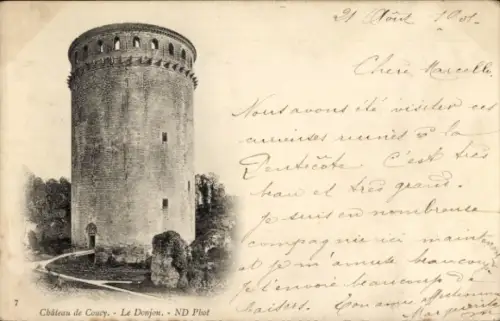 21 Août 1901
Chère Marcelle
Nous avons été visiter ces
curieuses ruines à la
Pentecôte c'est très
beau et très grand.
Je suis en nombreuse
compagnie ici maintenant
et je m'amuse beaucoup
je t'envoie beaucoup de
baisers. Ton amie affectionnée
Marguerite
7
Château de Coucy. - Le Donjon. - ND Phot